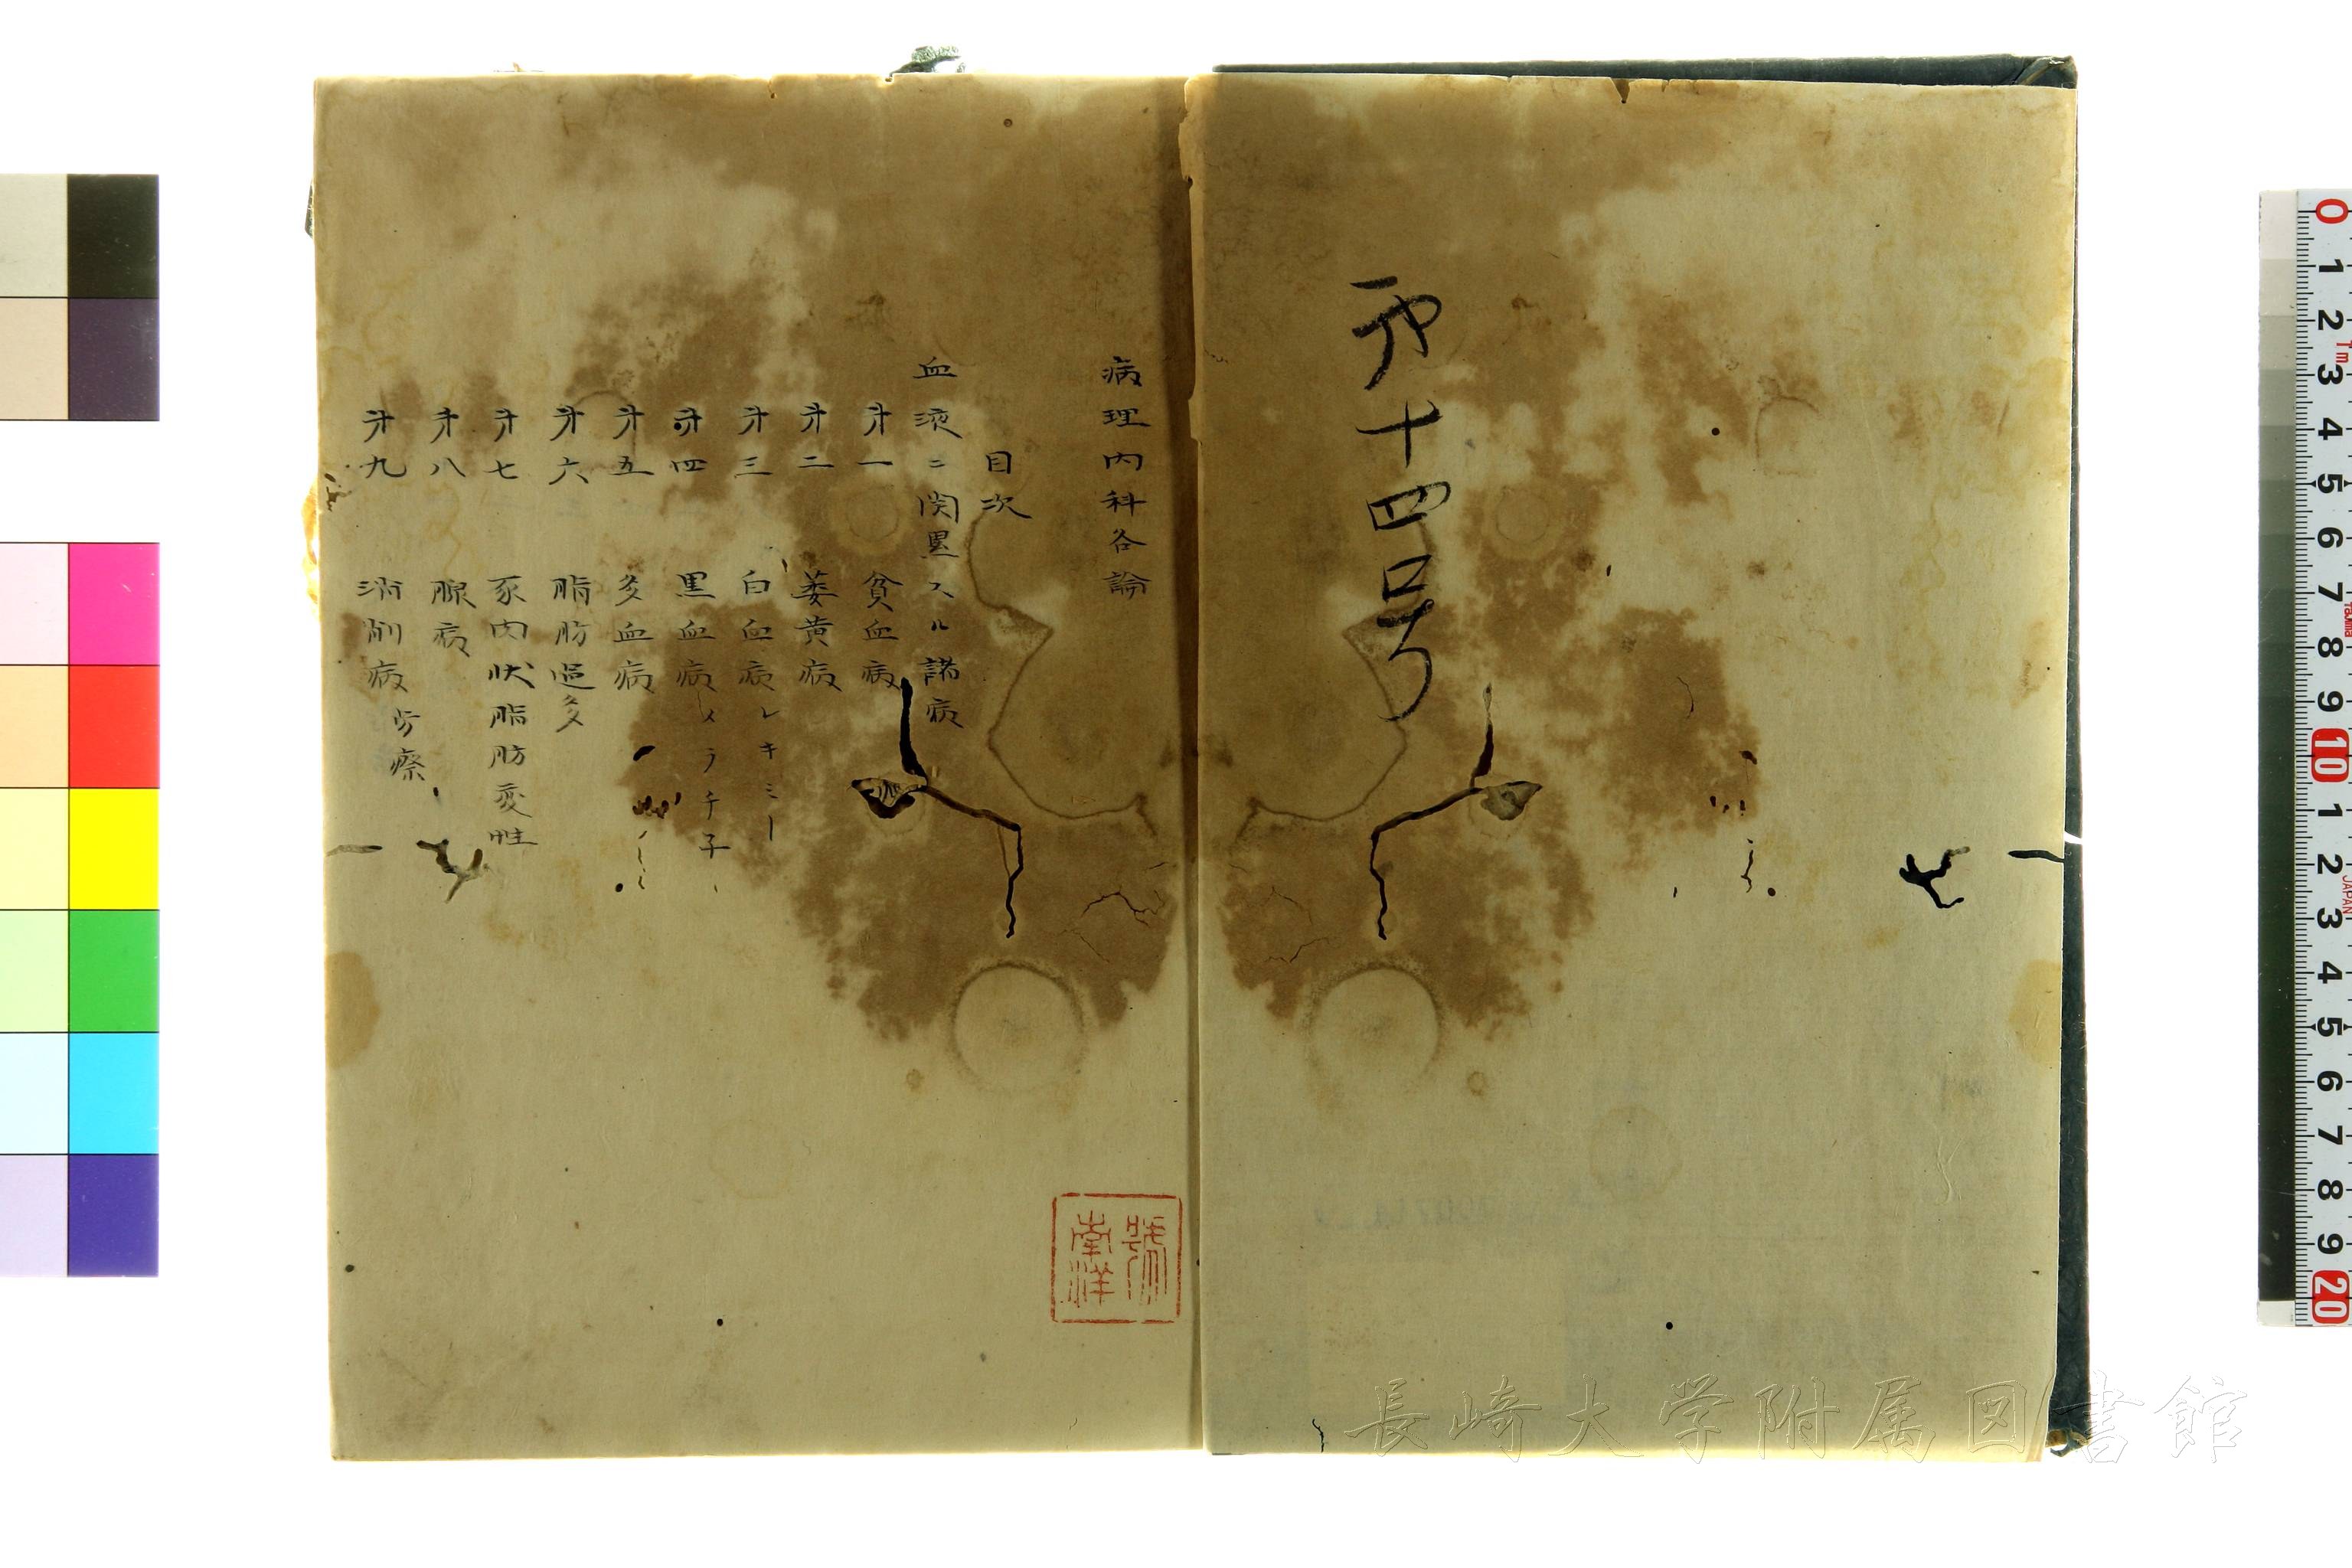 第十四号
病理内科各論
目次
血液ニ関累スル諸病
第一 貧血病
第二 萎黄病
第三 白血病 レキミー
第四 黒血病 メラ子チ
第五 多血病
第六 脂肪過多
第七 豕肉状脂肪変性
第八 腺病
第九 消削病 労瘵
號
南洋
長崎大学附属図書館
0 1 2 3 4 5 6 7 8 9 10 1 2 3 4 5 6 7 8 9 20
JAPAN